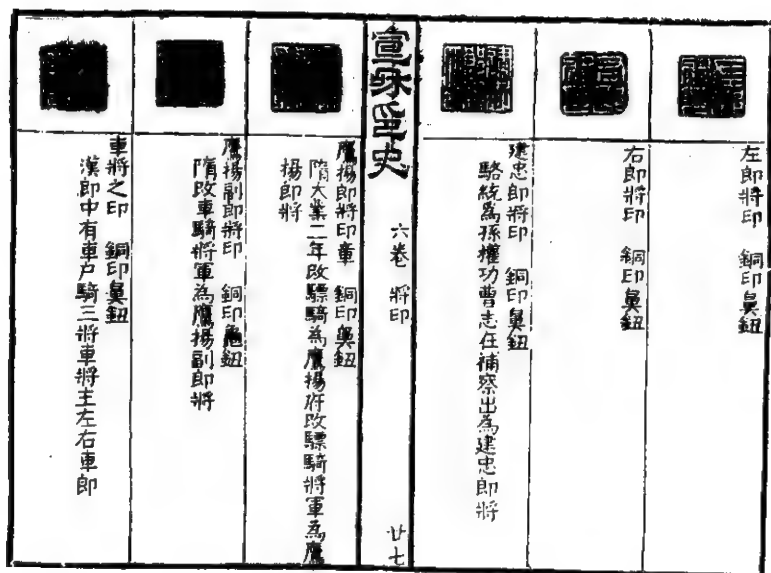 左郎將印　銅印鼻鈕
右郎將印　銅印鼻鈕
建忠郎將印　銅印鼻鈕
駱統為孫權功曹志在補察出為建忠郎將
宣和印史　六卷　將印　廿七
鷹揚郎將印章　銅印鼻鈕
隋大業二年改驃騎為鷹揚府改驃騎將軍為鷹
揚郎將
鷹揚副郎將印　銅印龜鈕
隋改車騎將軍為鷹揚副郎將
車將之印　銅印鼻鈕
漢郎中有車戶騎三將車將主左右車郎